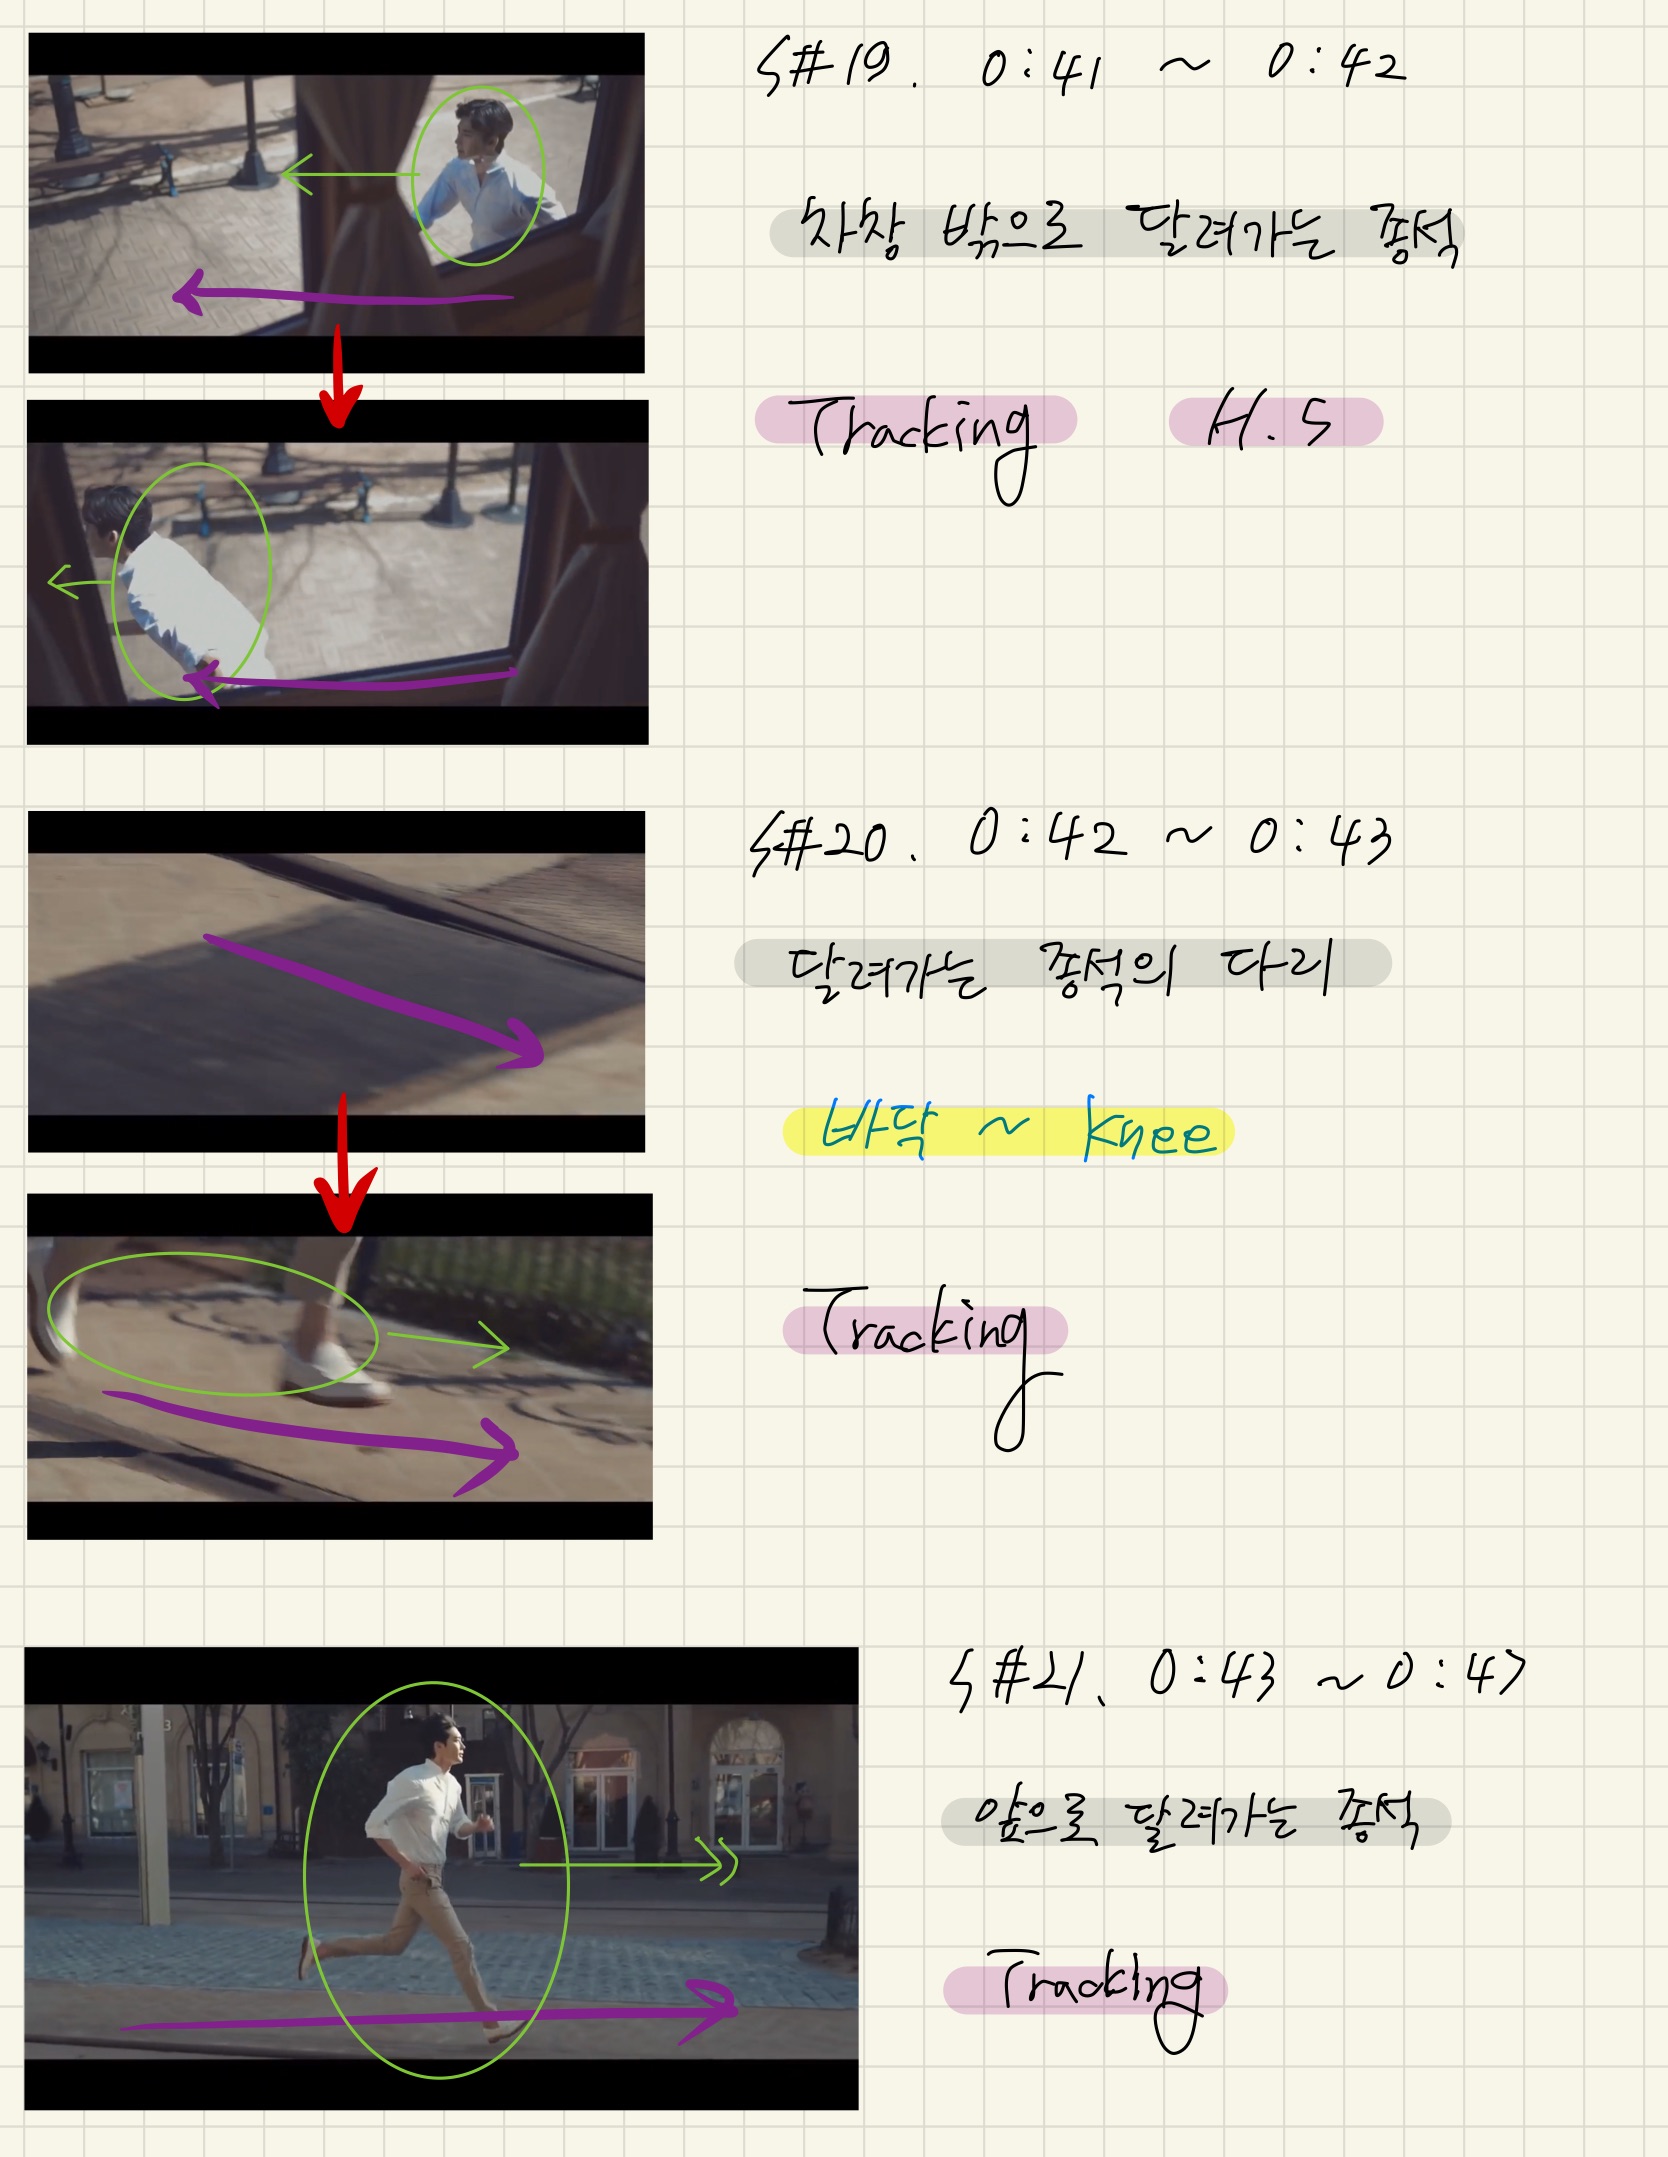 S#19. 0:41 ~ 0:42
차창 밖으로 달려가는 종석
Tracking H.S
S#20. 0:42 ~ 0:43
달려가는 종석의 다리
바닥 ~ knee
Tracking
S#21. 0:43 ~ 0:47
앞으로 달려가는 종석
Tracking